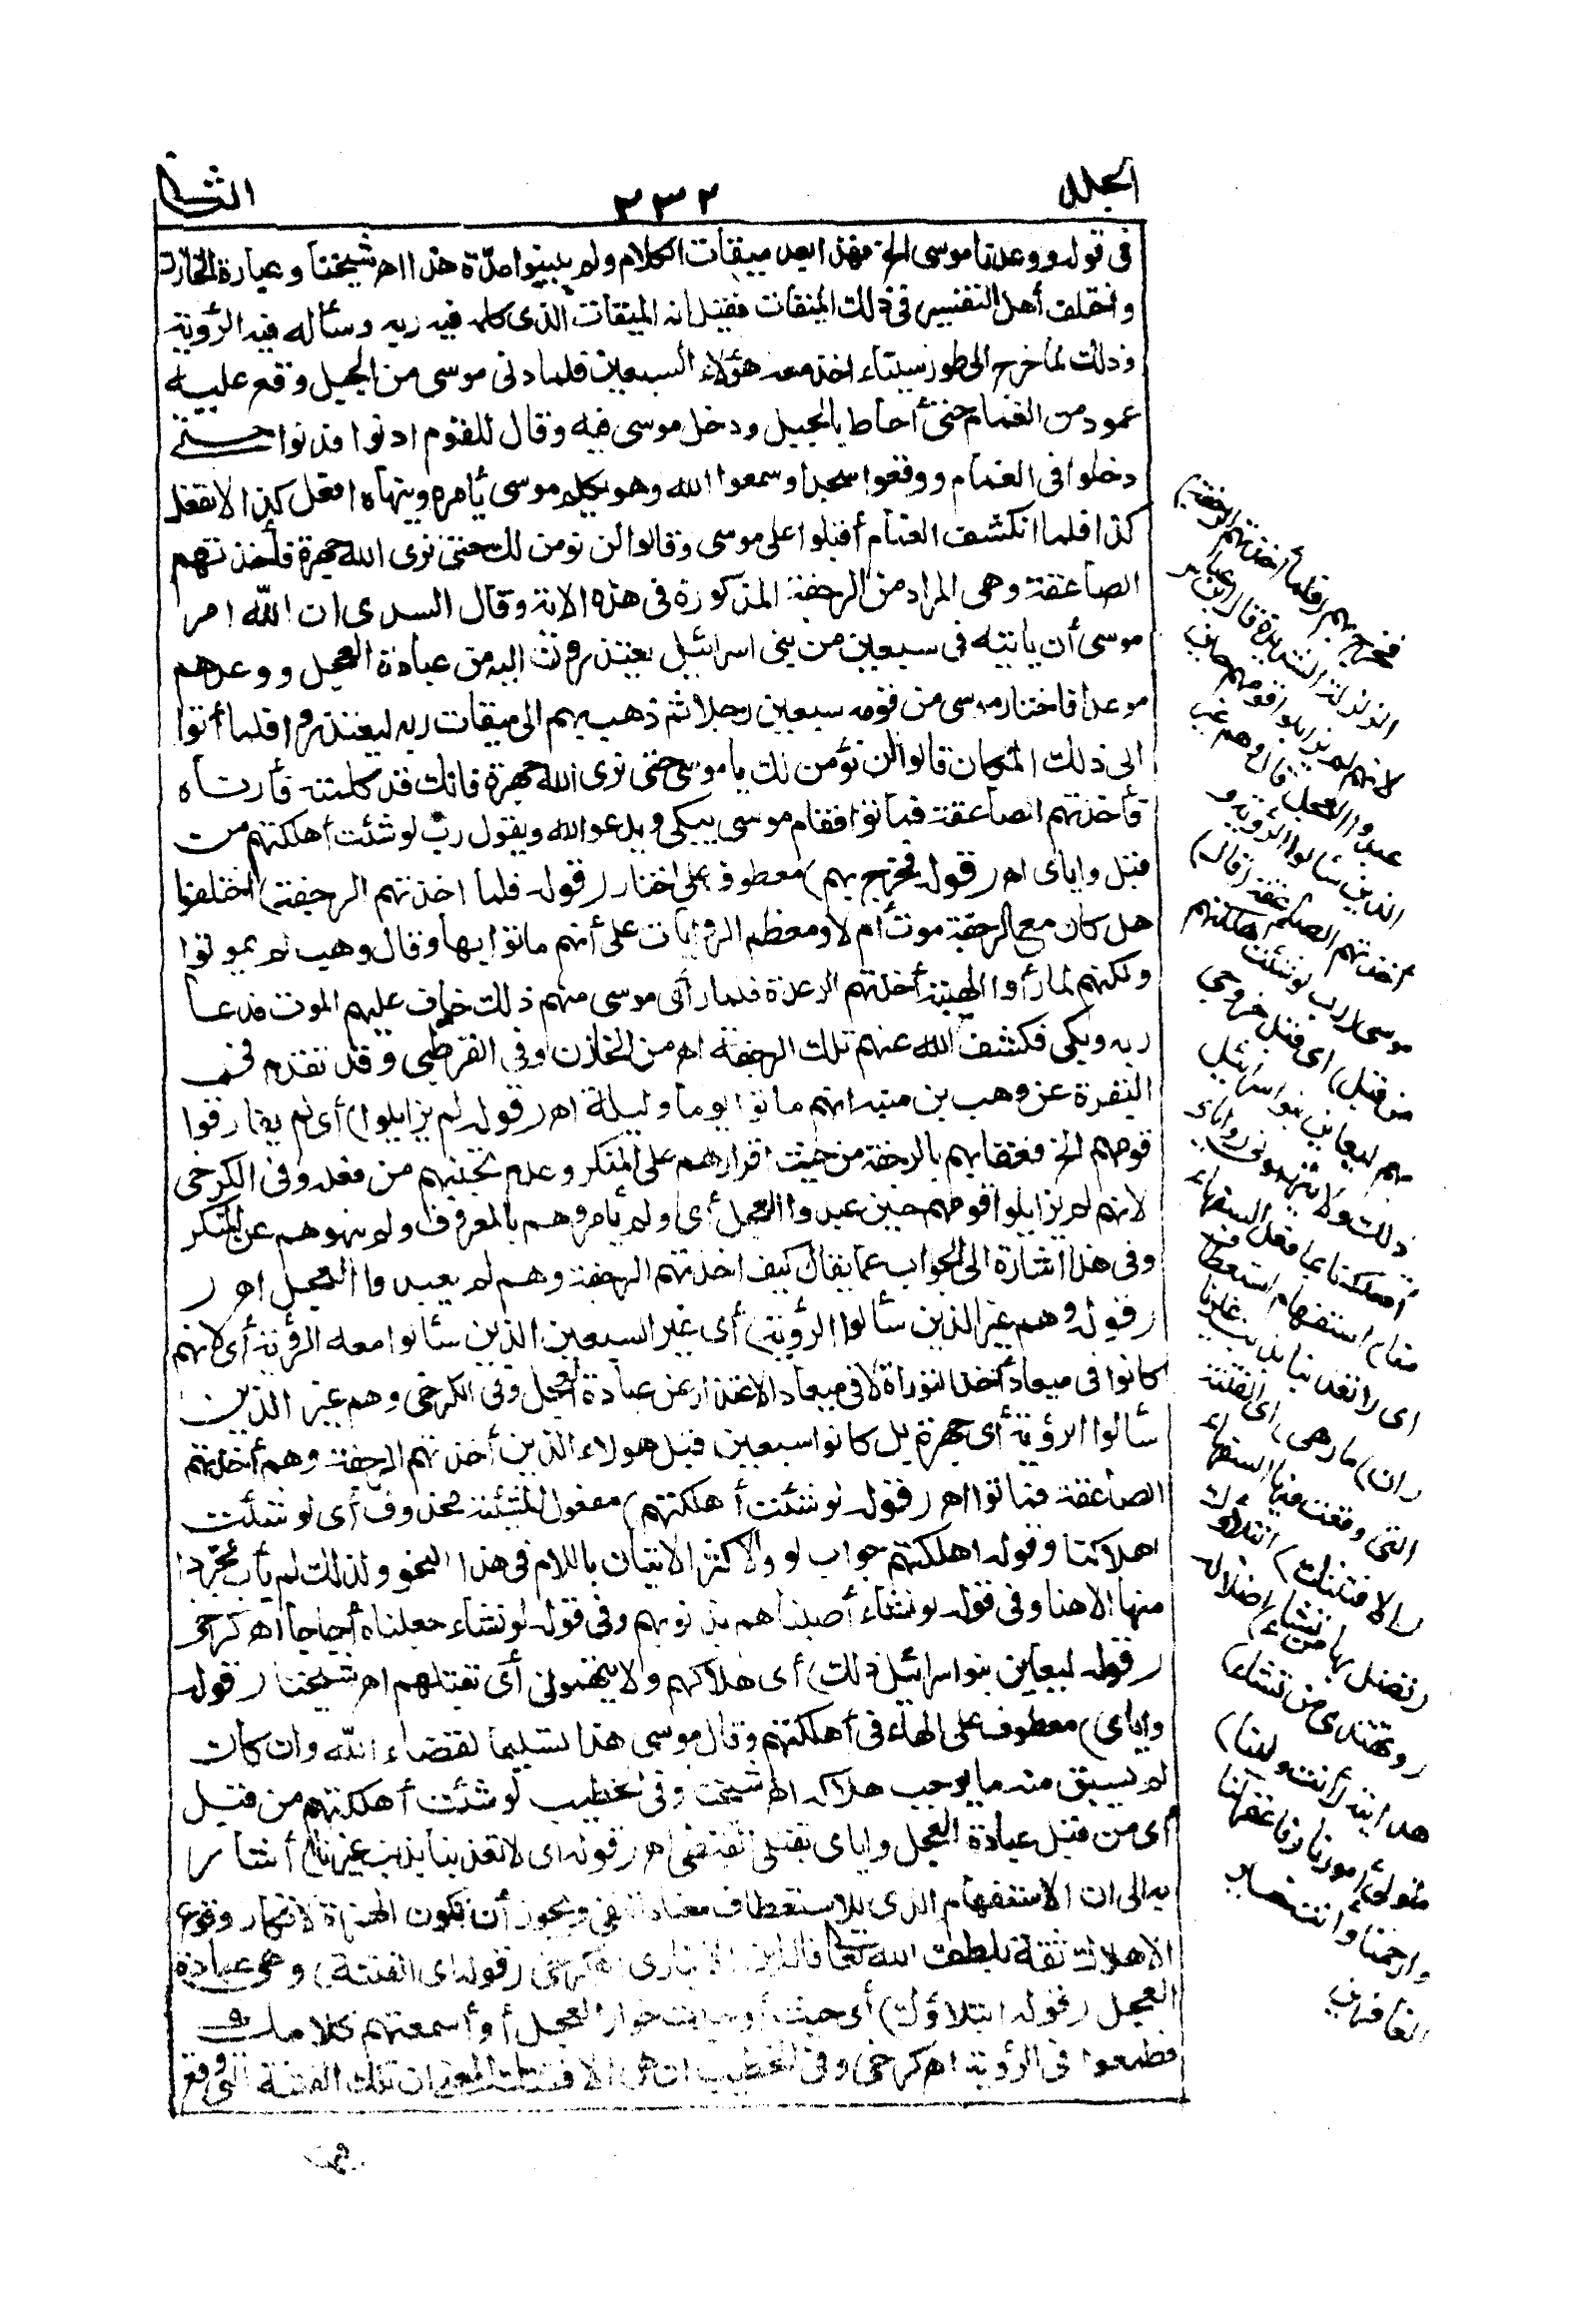 الجلد
٢٣٢
الثانى
فى قوله وواعدنا موسى الخ فهذا بعد ميقات الكلام ولم يبينوا مدّة هذا اهر شيخنا وعبارة الخازن
واختلف أهل التفسير فى ذلك الميقات فقيل انه الميقات الذى كلمه فيه ربه وسأله فيه الرؤية
وذلك لما خرج الى طور سيناء اخذ معه هؤلاء السبعين فلما دنى موسى من الجبل وقع عليه
عمود من الغمام حتى أحاط بالجبل ودخل موسى فيه وقال للقوم ادنوا فدنوا حتى
دخلوا فى الغمام ووقعوا سجدا وسمعوا الله وهو يكلم موسى يأمره وينهاه افعل كذا لا تفعل
كذا فلما انكشف الغمام أقبلوا على موسى وقالوا لن نومن لك حتى نرى الله جهرة فأخذتهم
الصاعقة وهى المراد من الرجفة المذكورة فى هذه الاية وقال السدى ان الله امر
موسى أن يأتيه فى سبعين من بنى اسرائيل يعتذرون اليه من عبادة العجل ووعدهم
موعدا فاختار موسى من قومه سبعين رجلا ثم ذهب بهم الى ميقات ربه ليعتذروا فلما أتوا
الى ذلك المكان قالوا لن نؤمن لك يا موسى حتى نرى الله جهرة فانك قد كلمته فأرناه
فأخذتهم الصاعقة فماتوا فقام موسى يبكى ويدعو الله ويقول رب لو شئت أهلكتهم من
قبل واياى اهر قوله فخرج بهم) معطوف على اختار رقوله فلما اخذتهم الرجفة) اختلفوا
هل كان مع الرجفة موت أم لا ومعظم الروايات على أنهم ماتوا بها وقال وهب لم يموتوا
ولكنهم لما رأوا الهيبة أخذتهم الرعدة فلما رأى موسى منهم ذلك خاف عليهم الموت فدعا
ربه وبكى فكشف الله عنهم تلك الرجفة اهر من الخازن وفى القرطبى وقد تقدم فى
البقرة عن وهب بن منبه انهم ماتوا يوما وليلة اهر رقوله لم يزايلوا) أى لم يفارقوا
قومهم الخ فعقابهم بالرجفة من حيث اقرارهم على المنكر وعدم تجنبهم من فعله وفى الكرخى
لانهم لم يزايلوا قومهم حين عبدوا العجل أى ولم يأمروهم بالمعروف ولم ينهوهم عن المنكر
وفى هذا اشارة الى الجواب عما يقال كيف اخذتهم الرجفة وهم لم يعبدوا العجل اهر ر
رقوله وهم غير الذين سألوا الرؤية) أى غير السبعين الذين سألوا معه الرؤية أى لانهم
كانوا فى ميعاد أخذ التوراة لا فى ميعاد الاعتذار عن عبادة العجل وفى الكرخى وهم غير الذين
سألوا الرؤية أى جهرة بل كانوا سبعين قبل هولاء الذين أخذتهم الرجفة وهم أخذتهم
الصاعقة فماتوا اهر رقوله لو شئت أهلكتهم) مفعول المشيئة محذوف أى لو شئت
اهلاكنا وقوله اهلكتهم جواب لو والاكثر الاتيان باللام فى هذا النحو ولذلك لم يأت مجردا
منها الا هنا وفى قوله لو نشاء أصبناهم بذنوبهم وفى قوله لو نشاء جعلناه أجاجا اهر كرخى
رقوله ليعاين بنو اسرائيل ذلك) أى هلاكهم ولا يتهمونى أى بقتلهم اهر شيخنا رقوله
واياى) معطوف على الهاء فى أهلكتهم وقال موسى هذا تسليما لقضاء الله وان كان
لم يسبق منه ما يوجب هلاكه اهر شيخنا وفى الخطيب لو شئت أهلكتهم من قبل
أى من قبل عبادة العجل واياى بقتلى القبطى اهر رقوله اى لا تعذبنا بذنب غيرنا) أشار
به الى ان الاستفهام الذى للاستعطاف معناه النفى ويجوز أن تكون الهمزة لانكار وقوع
الاهلاك ثقة بلطف الله تعالى قاله ابن الانبارى اهر كرخى رقوله اى الفتنة) وهى عبادة
العجل رقوله ابتلاؤك) أى حيث أوجدت خوار العجل أو أسمعتهم كلامك
فطمعوا فى الرؤية اهر كرخى وفى الخطيب ان هى الا فتنتك المعنى ان تلك الفتنة التى وقع
فخرج بهم رفلما أخذتهم الرجفة)
الزلزلة الشديدة قال ابن عباس
لانهم لم يزايلوا قومهم حين
عبدوا العجل قال وهم غير
الذين سألوا الرؤية و
أخذتهم الصاعقة رقال)
موسى ررب لو شئت أهلكتهم
من قبل) اى قبل خروجى
بهم ليعاين بنو اسرائيل
ذلك ولا يتهمونى رواياى
أتهلكنا بما فعل السفهاء
منا) استفهام استعطاف
اى لا تعذبنا بذنب غيرنا
ران) ما رهى) اى الفتنة
التى وقعت فيها السفهاء
رالا فتنتك) ابتلاؤك
رتضل بها من تشاء) اضلاله
روتهدى من تشاء)
هدايته رأنت ولينا)
متولى أمورنا رفاغفر لنا
وارحمنا وأنت خير
الغافرين